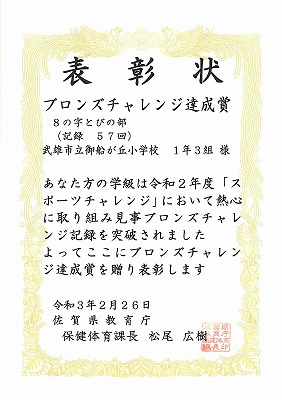 表彰状
ブロンズチャレンジ達成賞
8の字とびの部
(記録 57回)
武雄市立御船が丘小学校 1年3組 様
あなた方の学級は令和2年度「ス
ポーツチャレンジ」において熱心
に取り組み見事ブロンズチャレ
ンジ記録を突破されました
よってここにブロンズチャレン
ジ達成賞を贈り表彰します
令和3年2月26日
佐賀県教育庁
保健体育課長 松尾 広樹